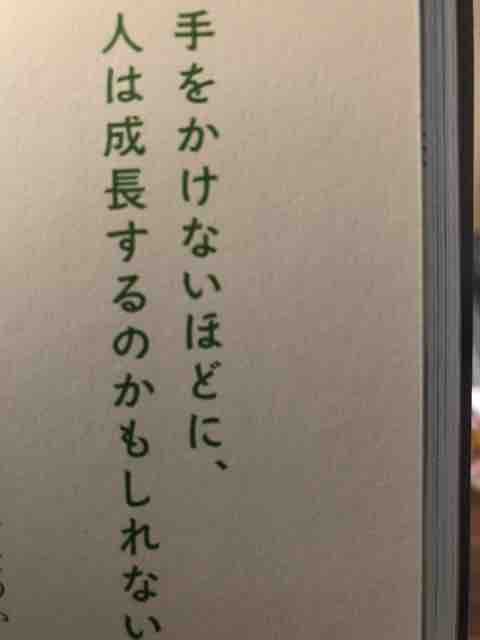 手をかけないほどに、
人は成長するのかもしれない